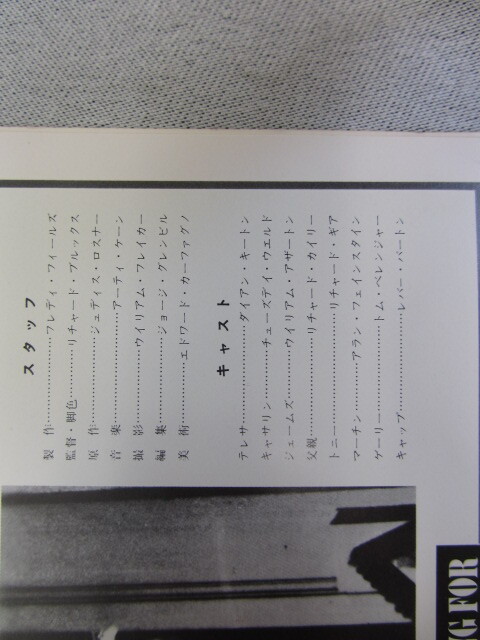 スタッフ
製作…………………フレディ・フィールズ
監督・脚色…………リチャード・ブルックス
原作…………………ジュディス・ロスナー
音楽…………………アーティ・ケーン
撮影…………………ウイリアム・フレイカー
編集…………………ジョージ・グレンビル
美術…………………エドワード・カーファグノ
キャスト
テレサ………………ダイアン・キートン
キャサリン…………チューズデイ・ウエルド
ジェームズ…………ウイリアム・アザートン
父親…………………リチャード・カイリー
トニー………………リチャード・ギア
マーチン……………アラン・フェインスタイン
ゲーリー……………トム・ベレンジャー
キャップ……………レバー・バートン
G FOR